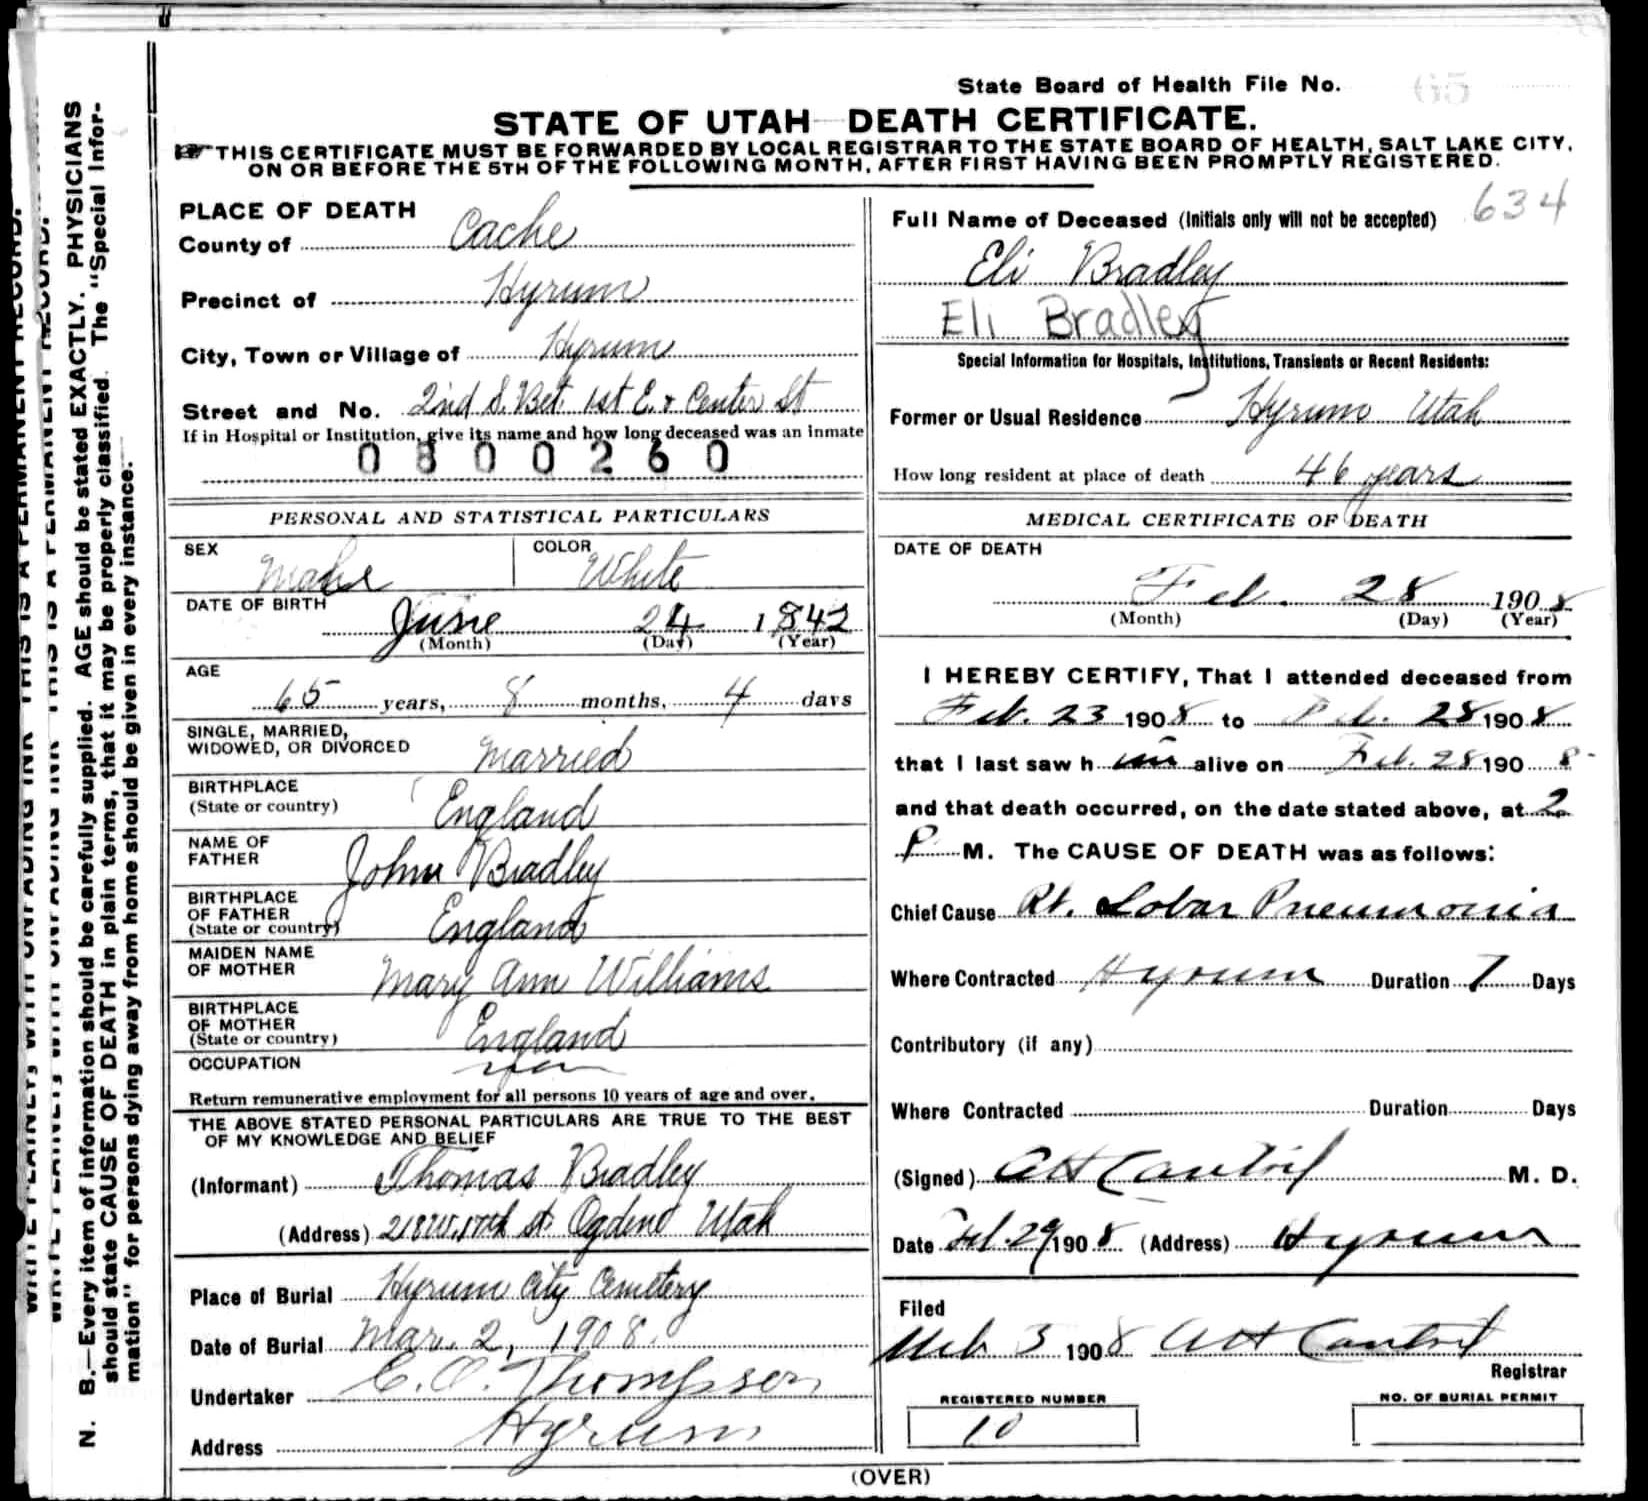 State Board of Health File No. 65
STATE OF UTAH—DEATH CERTIFICATE.
THIS CERTIFICATE MUST BE FORWARDED BY LOCAL REGISTRAR TO THE STATE BOARD OF HEALTH, SALT LAKE CITY,
ON OR BEFORE THE 5TH OF THE FOLLOWING MONTH, AFTER FIRST HAVING BEEN PROMPTLY REGISTERED.
PLACE OF DEATH
County of Cache
Precinct of Hyrum
City, Town or Village of Hyrum
Street and No. 2nd S. Bet. 1st E. & Center St
If in Hospital or Institution, give its name and how long deceased was an inmate
0800260
PERSONAL AND STATISTICAL PARTICULARS
SEX Male COLOR White
DATE OF BIRTH
June 24 1842
(Month) (Day) (Year)
AGE
65 years, 8 months, 4 days
SINGLE, MARRIED,
WIDOWED, OR DIVORCED Married
BIRTHPLACE
(State or country) England
NAME OF
FATHER John Bradley
BIRTHPLACE
OF FATHER
(State or country) England
MAIDEN NAME
OF MOTHER Mary Ann Williams
BIRTHPLACE
OF MOTHER
(State or country) England
OCCUPATION
Return remunerative employment for all persons 10 years of age and over.
THE ABOVE STATED PERSONAL PARTICULARS ARE TRUE TO THE BEST
OF MY KNOWLEDGE AND BELIEF
(Informant) Thomas Bradley
(Address) St. Ogden Utah
Place of Burial Hyrum City Cemetery
Date of Burial Mar. 2, 1908.
Undertaker E. O. Thompson
Address Hyrum
634
Full Name of Deceased (Initials only will not be accepted)
Eli Bradley
Eli Bradley
Special Information for Hospitals, Institutions, Transients or Recent Residents:
Former or Usual Residence Hyrum Utah
How long resident at place of death 46 years
MEDICAL CERTIFICATE OF DEATH
DATE OF DEATH
Feb. 28 1908
(Month) (Day) (Year)
I HEREBY CERTIFY, That I attended deceased from
Feb. 23 1908 to Feb. 28 1908
that I last saw him alive on Feb. 28 1908
and that death occurred, on the date stated above, at 2
P M. The CAUSE OF DEATH was as follows:
Chief Cause Rt. Lobar Pneumonia
Where Contracted Hyrum Duration 7 Days
Contributory (if any)
Where Contracted Duration Days
(Signed) M. D.
Date Feb. 29 1908 (Address) Hyrum
Filed
3 1908
Registrar
REGISTERED NUMBER
10
NO. OF BURIAL PERMIT
(OVER)
WRITE PLAINLY, WITH UNFADING INK—THIS IS A PERMANENT RECORD.
WRITE PLAINLY, WITH UNFADING INK—THIS IS A PERMANENT RECORD.
N. B.—Every item of information should be carefully supplied. AGE should be stated EXACTLY. PHYSICIANS
should state CAUSE OF DEATH in plain terms, that it may be properly classified. The "Special Infor-
mation" for persons dying away from home should be given in every instance.